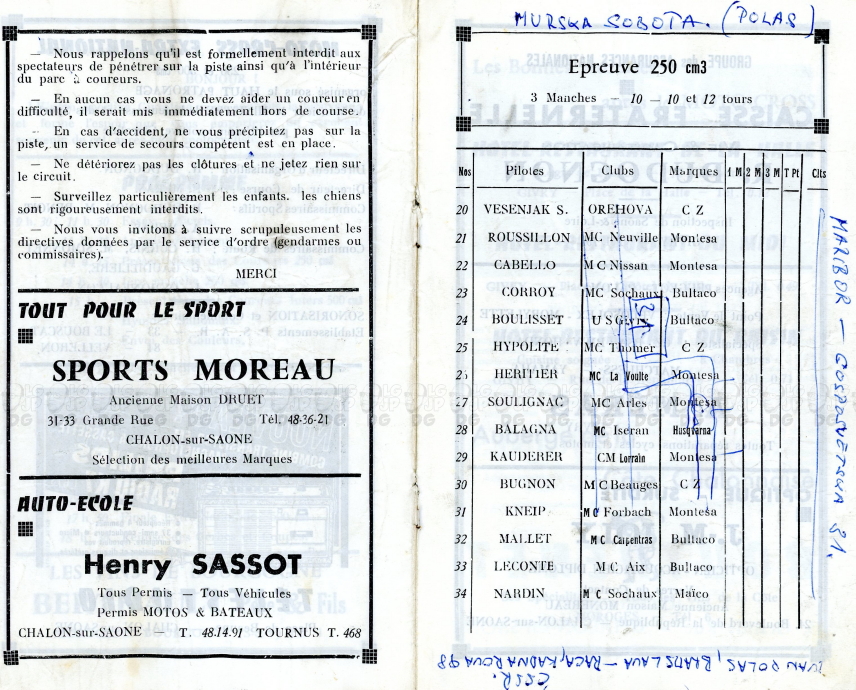 — Nous rappelons qu'il est formellement interdit aux
spectateurs de pénétrer sur la piste ainsi qu'à l'intérieur
du parc à coureurs.
— En aucun cas vous ne devez aider un coureur en
difficulté, il serait mis immédiatement hors de course.
— En cas d'accident, ne vous précipitez pas sur la
piste, un service de secours compétent est en place.
— Ne détériorez pas les clôtures et ne jetez rien sur
le circuit.
— Surveillez particulièrement les enfants. les chiens
sont rigoureusement interdits.
— Nous vous invitons à suivre scrupuleusement les
directives données par le service d'ordre (gendarmes ou
commissaires).
MERCI
TOUT POUR LE SPORT
SPORTS MOREAU
Ancienne Maison DRUET
31-33 Grande Rue Tél. 48-36-21
CHALON-sur-SAONE
Sélection des meilleures Marques
AUTO-ECOLE
Henry SASSOT
Tous Permis — Tous Véhicules
Permis MOTOS & BATEAUX
CHALON-sur-SAONE — T. 48.14.91 TOURNUS T. 468
MURSKA SOBOTA. (POLAS)
Epreuve 250 cm3
3 Manches — 10 — 10 et 12 tours
Nos Pilotes Clubs Marques 1 M 2 M 3 M T Pt Clts
20 VESENJAK S. OREHOVA C Z
21 ROUSSILLON MC Neuville Montesa
22 CABELLO M C Nissan Montesa
23 CORROY MC Sochaux Bultaco
24 BOULISSET U S Givry Bultaco
25 HYPOLITE MC Thomer C Z
26 HERITIER MC La Voulte Montesa
27 SOULIGNAC MC Arles Montesa
28 BALAGNA MC Iseran Husqvarna
29 KAUDERER CM Lorrain Montesa
30 BUGNON M C Beauges C Z
31 KNEIP M C Forbach Montesa
32 MALLET M C Carpentras Bultaco
33 LECONTE M C Aix Bultaco
34 NARDIN M C Sochaux Maïco
MARIBOR — GOSPOSVETSKA 31.
IVAN POLAS, BRATISLAVA — RACA, KADNAROVA 98
ČSSR.